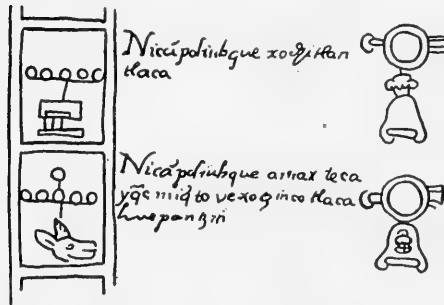 Nicā poliuhque xochitlan
tlaca
Nicā poliuhque amaxteca
yq̄c miq̄to vexoçinco tlaca
huepantzin